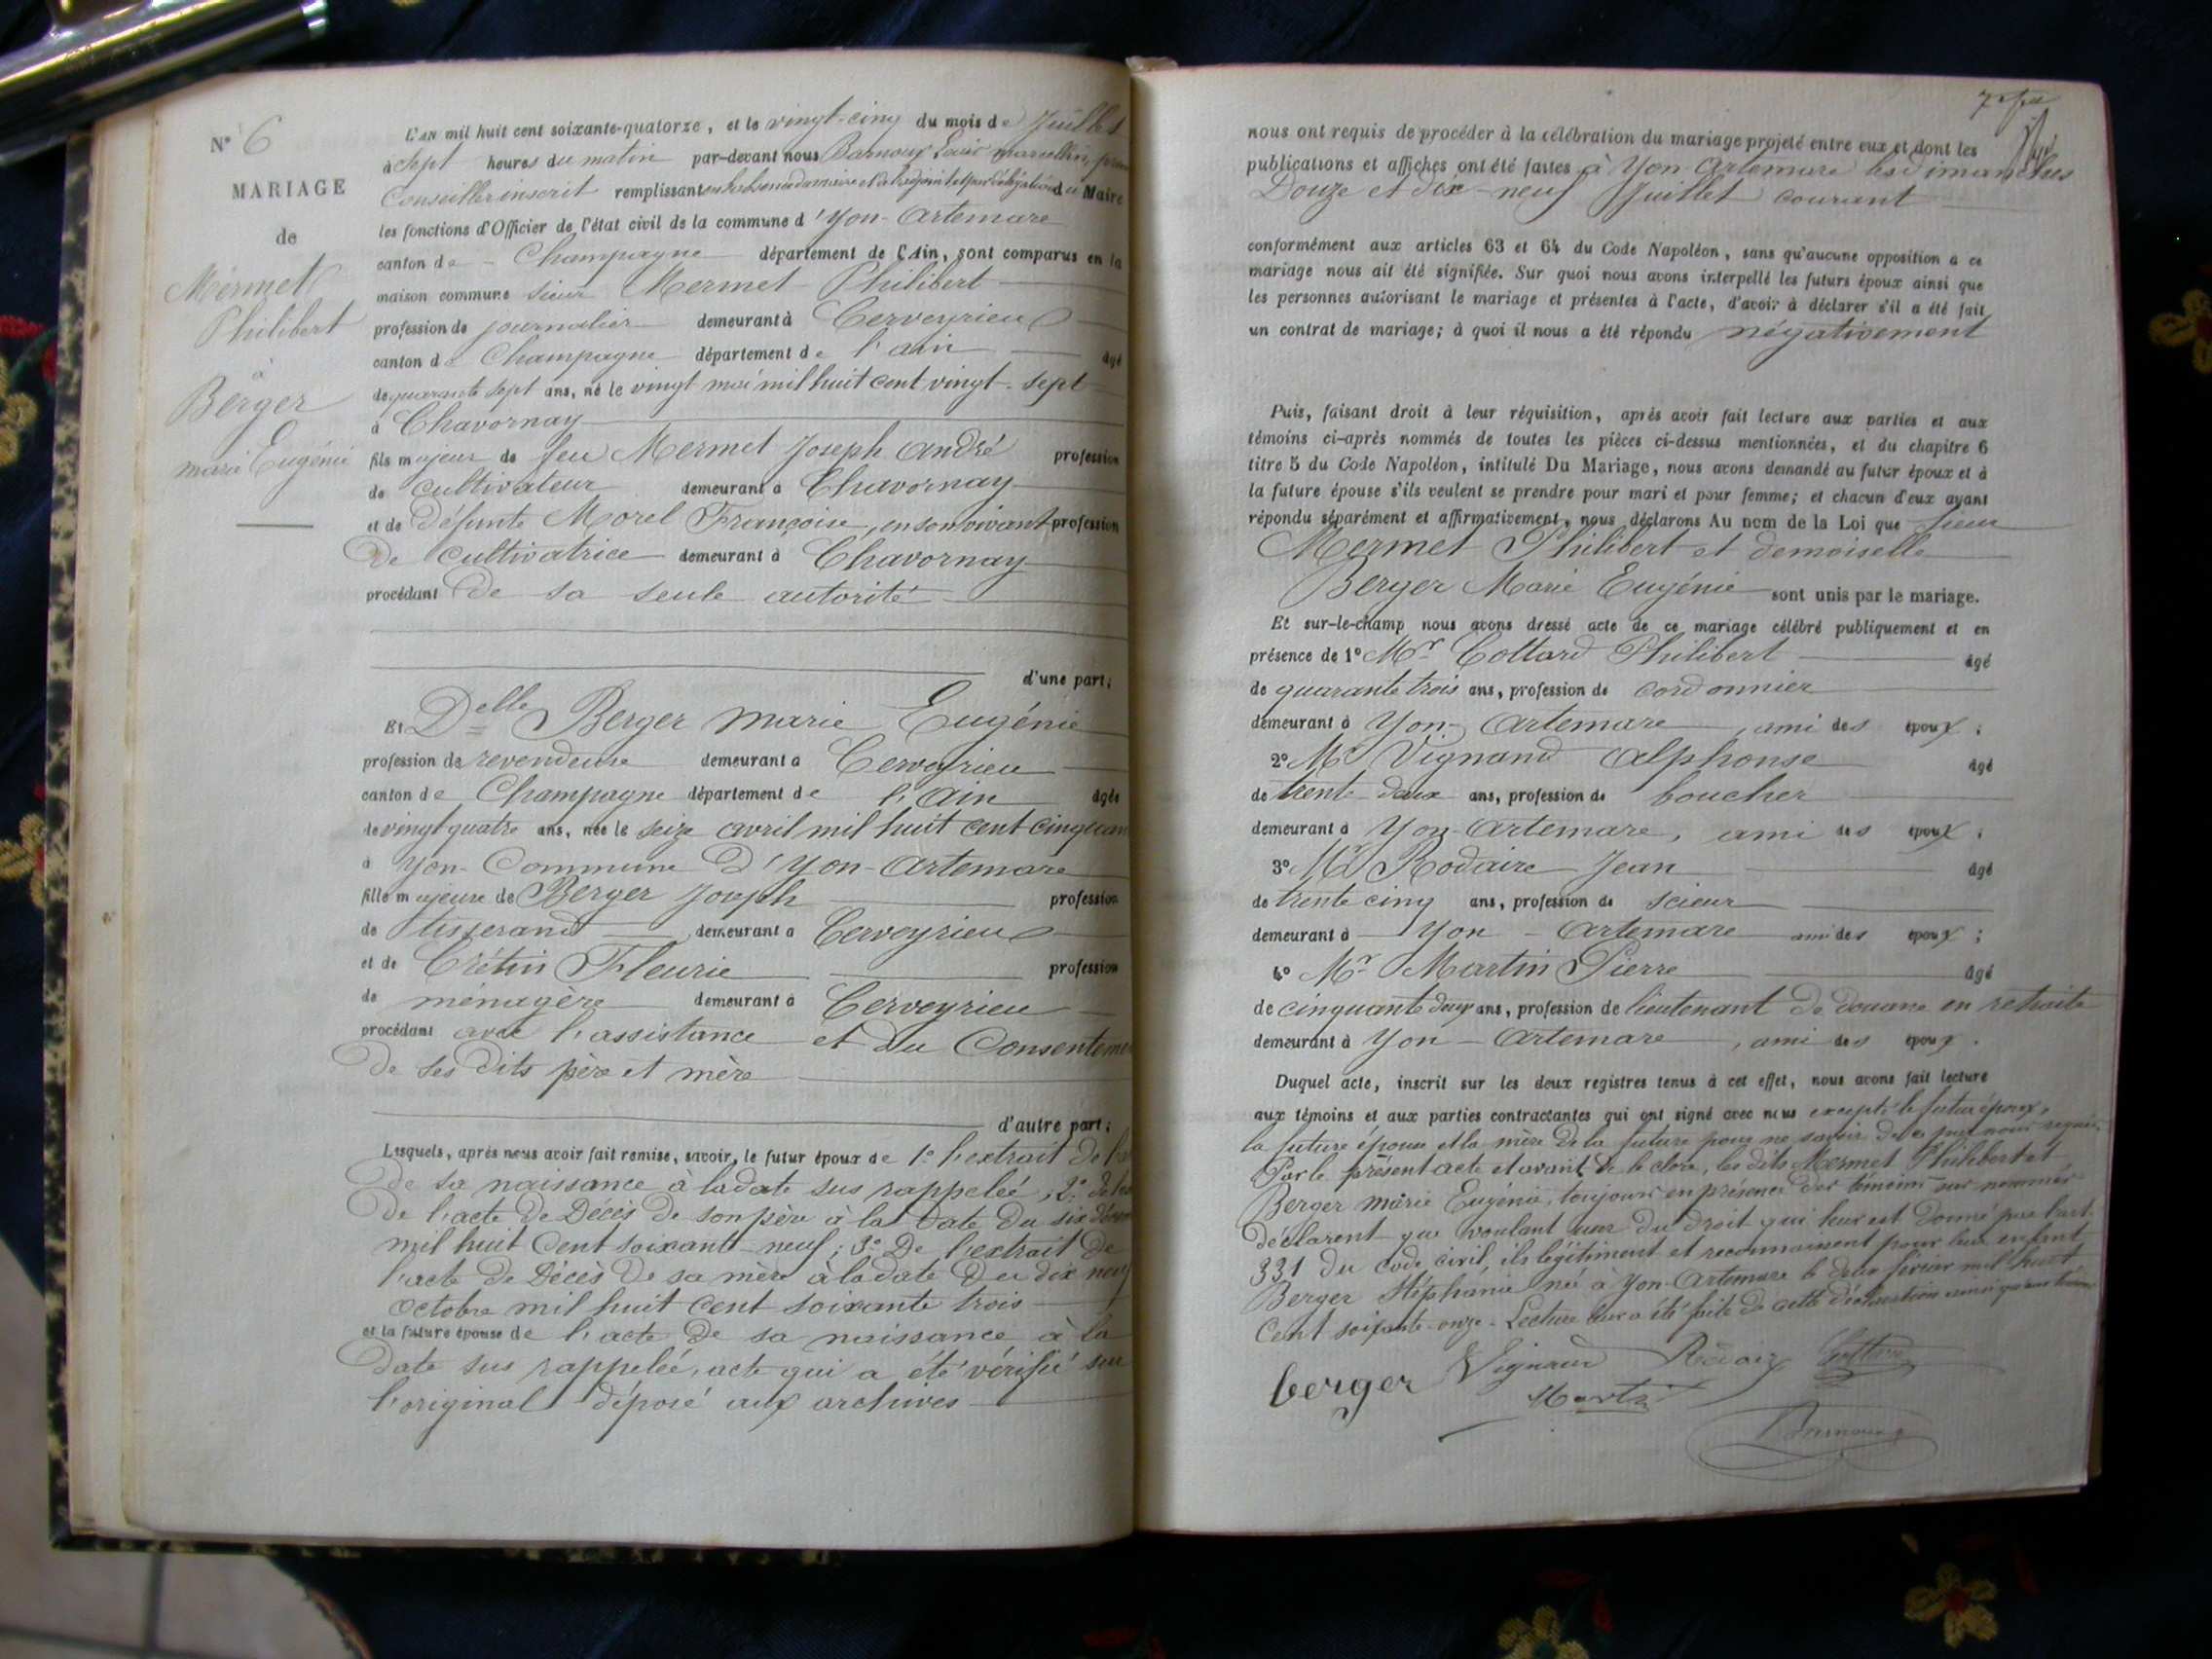 N° 6
MARIAGE
de
Mermet
Philibert
à
Berger
marie Eugénie
L'AN mil huit cent soixante-quatorze, et le vingt-cinq du mois de Juillet
à sept heures du matin par-devant nous Barnoux Louis marcellin,
Conseiller inscrit remplissant en l'absence du maire et de l'adjoint et par délégation du Maire
les fonctions d'Officier de l'état civil de la commune d'Yon-Artemare
canton de Champagne département de l'Ain, sont comparus en la
maison commune sieur Mermet Philibert
profession de journalier demeurant à Cerveyrieu
canton de Champagne département de l'ain âgé
de quarante sept ans, né le vingt mai mil huit cent vingt-sept
à Chavornay
fils majeur de feu Mermet Joseph André profession
de cultivateur demeurant à Chavornay
et de défunte Morel Françoise, en son vivant profession
De cultivatrice demeurant à Chavornay
procédant De sa seule autorité
d'une part;
Et Delle Berger marie Eugénie
profession de revendeuse demeurant à Cerveyrieu
canton de Champagne département de l'Ain âgée
de vingt quatre ans, née le seize avril mil huit cent cinquan
à Yon Commune D'Yon-Artemare
fille majeure de Berger Joseph profession
de tisserand demeurant à Cerveyrieu
et de Crétin Fleurie profession
de ménagère demeurant à Cerveyrieu
procédant avec l'assistance et du Consenteme
De ses dits père et mère
d'autre part;
Lesquels, après nous avoir fait remise, savoir, le futur époux de 1° l'extrait de
De sa naissance à la date sus rappelée; 2° de
De l'acte De Décès De son père à la Date Du six
mil huit Cent soixante-neuf; 3° De l'extrait De
l'acte De Décès De sa mère à la date Du dix neuf
octobre mil huit Cent soixante trois
et la future épouse de l'acte De sa naissance à la
Date sus rappelée, acte qui a été vérifié sur
l'original déposé aux archives
nous ont requis de procéder à la célébration du mariage projeté entre eux et dont les
publications et affiches ont été faites à Yon Artemare les dimanches
Douze et dix-neuf Juillet courant
conformément aux articles 63 et 64 du Code Napoléon, sans qu'aucune opposition à ce
mariage nous ait été signifiée. Sur quoi nous avons interpellé les futurs époux ainsi que
les personnes autorisant le mariage et présentes à l'acte, d'avoir à déclarer s'il a été fait
un contrat de mariage; à quoi il nous a été répondu négativement
Puis, faisant droit à leur réquisition, après avoir fait lecture aux parties et aux
témoins ci-après nommés de toutes les pièces ci-dessus mentionnées, et du chapitre 6
titre 5 du Code Napoléon, intitulé Du Mariage, nous avons demandé au futur époux et à
la future épouse s'ils veulent se prendre pour mari et pour femme; et chacun d'eux ayant
répondu séparément et affirmativement, nous déclarons Au nom de la Loi que sieur
Mermet Philibert et demoiselle
Berger Marie Eugénie sont unis par le mariage.
Et sur-le-champ nous avons dressé acte de ce mariage célébré publiquement et en
présence de 1° Mr Cottard Philibert âgé
de quarante trois ans, profession de cordonnier
demeurant à Yon-Artemare, ami des époux;
2° Mr Vignand Alphonse âgé
de trente deux ans, profession de boucher
demeurant à Yon-Artemare, ami des époux;
3° Mr Rodaire Jean âgé
de trente cinq ans, profession de scieur
demeurant à Yon-Artemare ami des époux;
4° Mr Martin Pierre âgé
de cinquante deux ans, profession de lieutenant de douane en retraite
demeurant à Yon-Artemare, ami des époux.
Duquel acte, inscrit sur les deux registres tenus à cet effet, nous avons fait lecture
aux témoins et aux parties contractantes qui ont signé avec nous excepté le futur époux,
la future épouse et la mère de la future pour ne savoir de ce par nous requis.
Par le présent acte et avant de le clore, les dits Mermet Philibert et
Berger marie Eugénie, toujours en présence des témoins sus nommés
déclarent que voulant user du droit qui leur est donné par l'art.
331 du code civil, ils légitiment et reconnaissent pour leur enfant
Berger Stéphanie née à Yon-Artemare le deux février mil huit
Cent soixante-onze. Lecture leur a été faite de cette déclaration ainsi qu'aux témoins
berger Vignand Rodaire Cottard
Martin
Barnoux